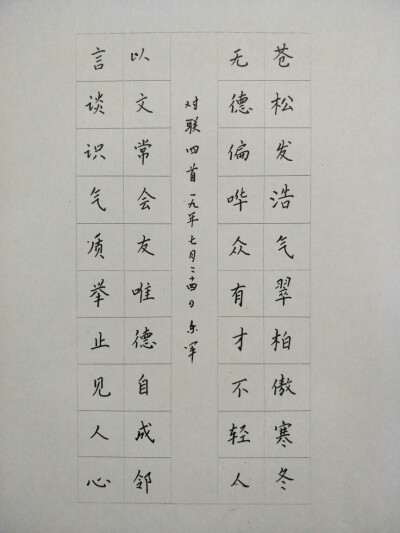 苍松发浩气翠柏傲寒冬
无德偏哗众有才不轻人
对联四首一九年七月二十四日军
以文常会友唯德自成邻
言谈识气质举止见人心